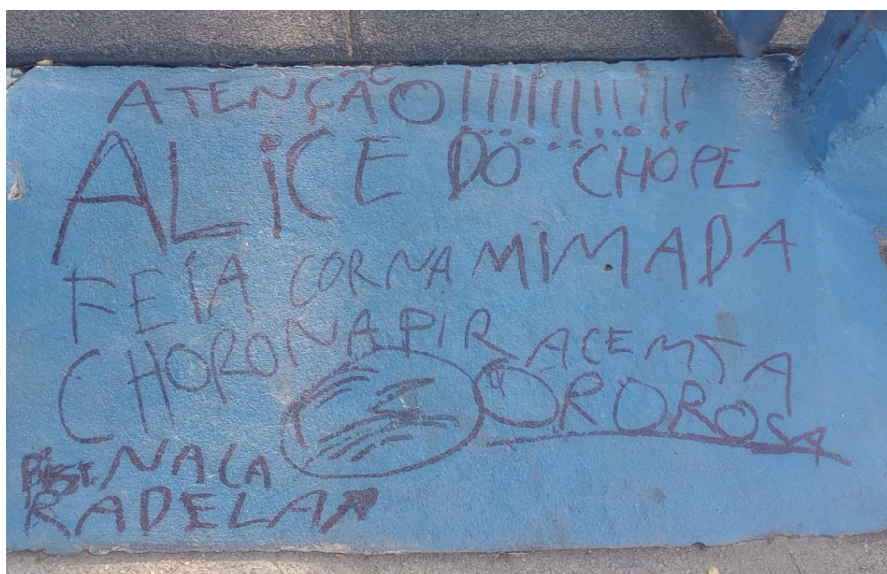 ATENÇÃO!!!!!!!!!!
ALiCE DO CHOPE
FEIA CORNA MiMADA
CHORONA PIRACEMTA
ÓROROSA
PISE NA CA
RADELA